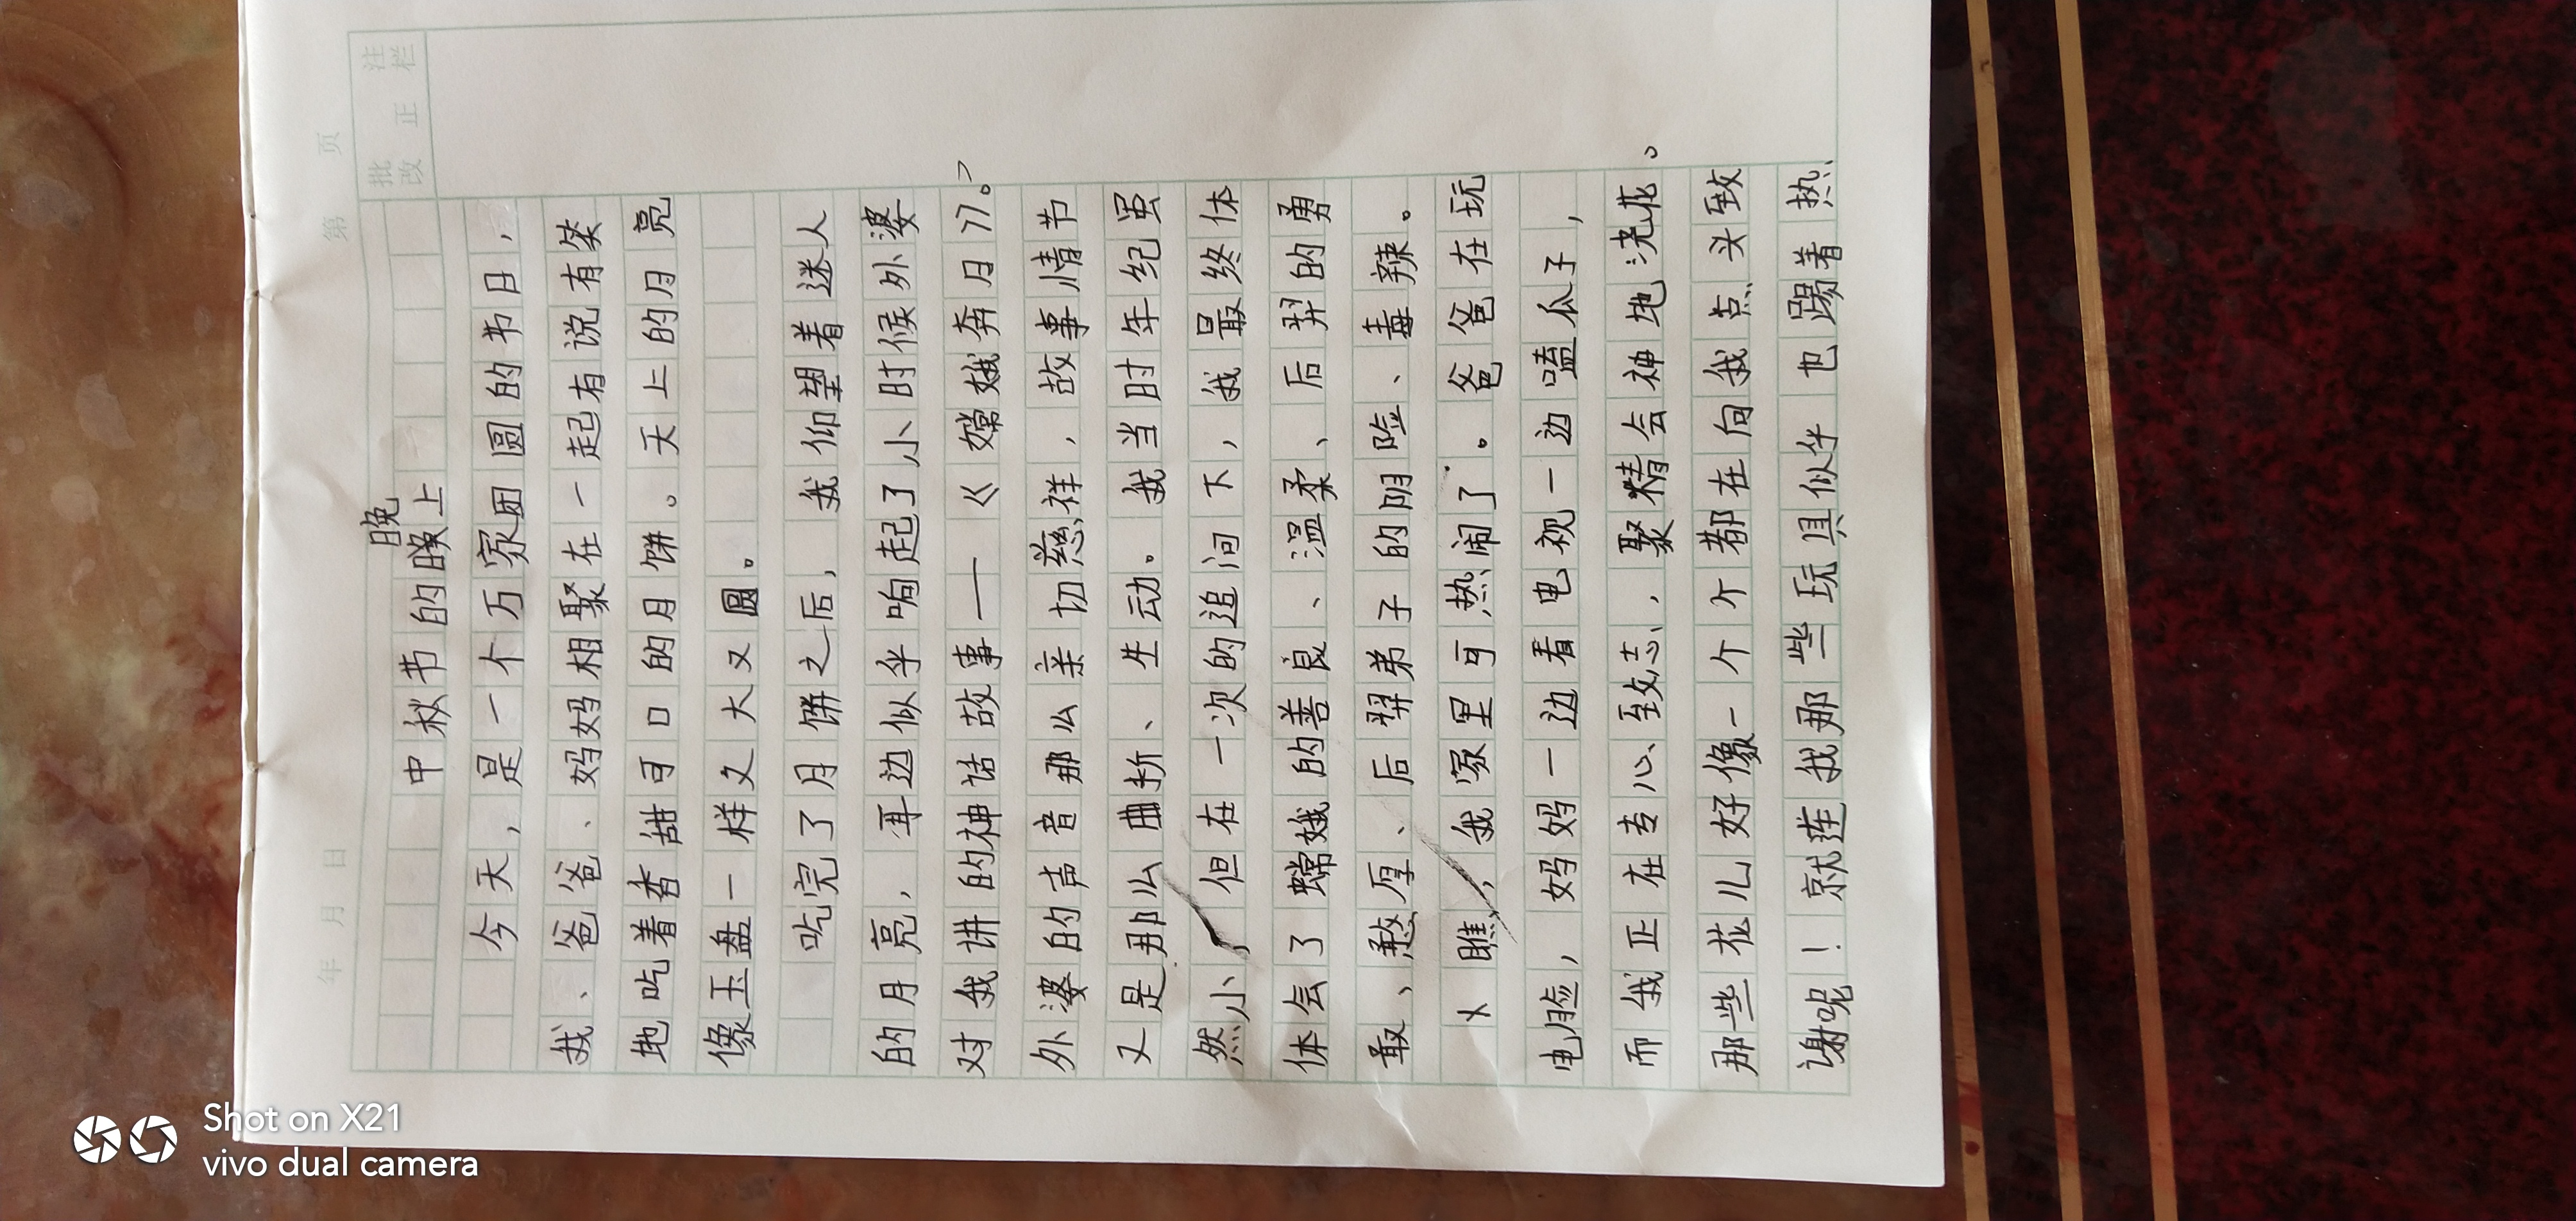 年 月 日
第 页
批改 正 注栏
晚
中秋节的晚上
今天，是一个万家团圆的节日，
我、爸爸、妈妈相聚在一起有说有笑
地吃着香甜可口的月饼。天上的月亮
像玉盘一样又大又圆。
吃完了月饼之后，我仰望着迷人
的月亮，耳边似乎响起了小时候外婆
对我讲的神话故事——《嫦娥奔月》。
外婆的声音那么亲切慈祥，故事情节
又是那么曲折、生动。我当时年纪虽
然小，但在一次次的追问下，我最终体
体会了嫦娥的善良、温柔、后羿的勇
敢、憨厚、后羿弟子的阴险、毒辣。
瞧，我家里可热闹了。爸爸在玩
电脸，妈妈一边看电视一边嗑瓜子，
而我正在专心致志，聚精会神地浇花。
那些花儿好像一个个都在向我点头致
谢呢！就连我那些玩具似乎也踢着热
Shot on X21
vivo dual camera